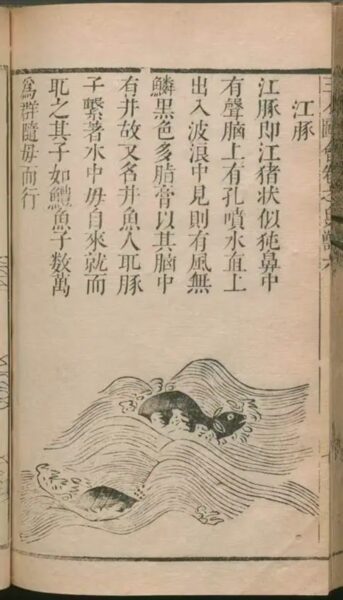 三才圖會
江豚
江豚即江猪狀似㹠鼻中
有聲腦上有孔噴水直上
出入波浪中見則有風無
鱗黑色多脂膏以其腦中
有井故又名井魚人取豚
子繫著水中母自來就而
取之其子如鱧魚子数萬
為群隨母而行